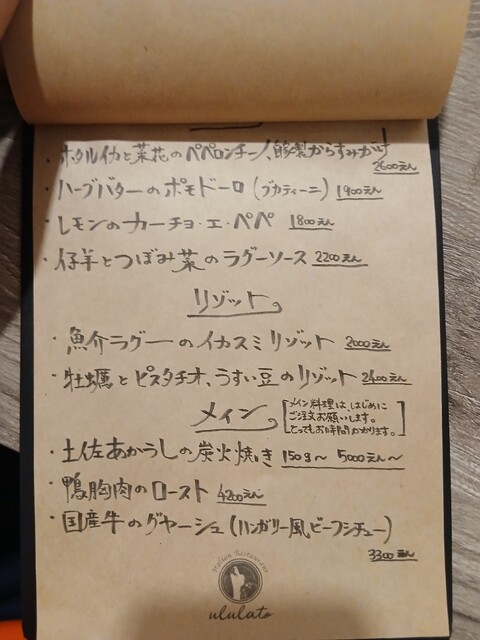 ・ホタルイカと菜花のペペロンチーノ、自家製からすみがけ
2600えん
・ハーブバターのポモドーロ(ブカティーニ) 1900えん
・レモンのカーチョ・エ・ペペ 1800えん
・仔羊とつぼみ菜のラグーソース 2200えん
リゾット
・魚介ラグーのイカスミリゾット 2000えん
・牡蠣とピスタチオ、うすい豆のリゾット 2400えん
メイン [メイン料理は、はじめに
ご注文お願いします。
とってもお時間かかります。]
・土佐あかうしの炭火焼き 150g〜 5000えん〜
・鴨胸肉のロースト 4200えん
・国産牛のグヤーシュ(ハンガリー風ビーフシチュー)
3300えん
Italian Restaurant
ululato